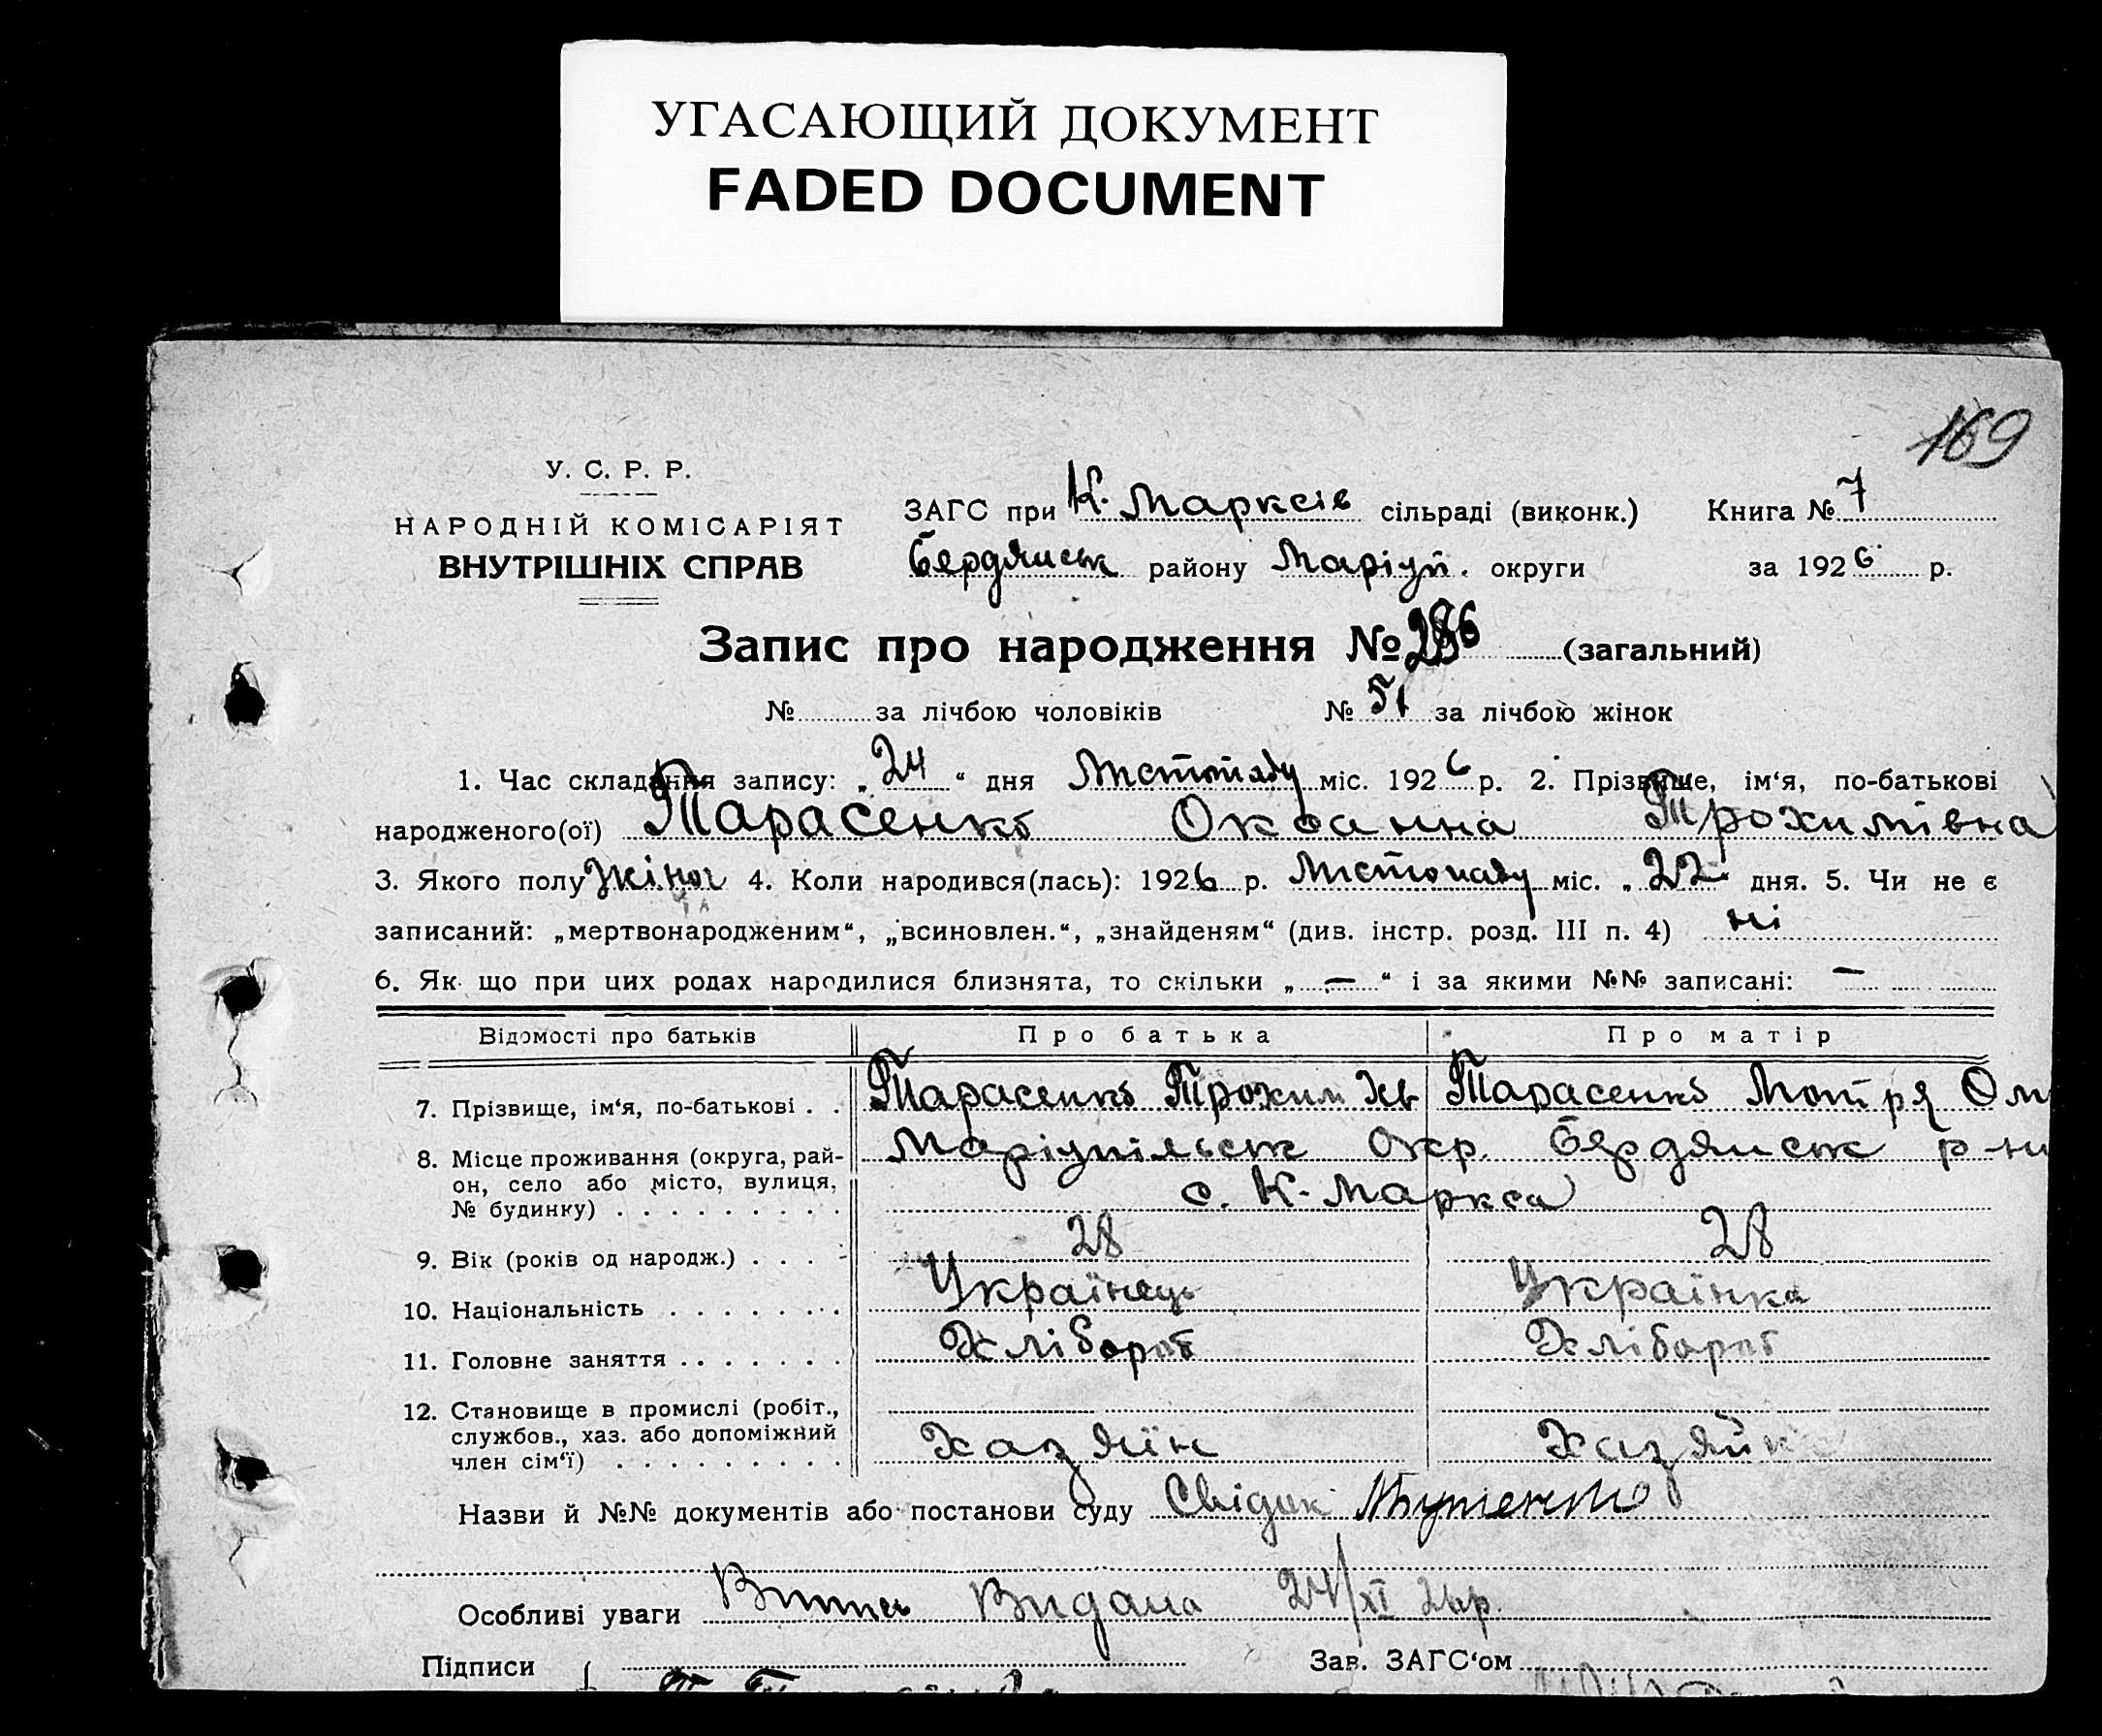 УГАСАЮЩИЙ ДОКУМЕНТ
FADED DOCUMENT
169
У. С. Р. Р.
НАРОДНІЙ КОМІСАРІЯТ
ВНУТРІШНІХ СПРАВ
ЗАГС при К. Марксів сільраді (виконк.) Книга № 7
Бердянськ району Маріуп. округи за 1926 р.
Запис про народження № 286 (загальний)
№ за лічбою чоловіків № 51 за лічбою жінок
1. Час складання запису: „ 24 “ дня Листопаду міс. 1926 р. 2. Прізвище, ім‘я, по-батькові
народженого(ої) Тарасенко Оксанна Трохимівна
3. Якого полу жіноч 4. Коли народився(лась): 1926 р. Листопаду міс. „ 22 “ дня. 5. Чи не є
записаний: „мертвонародженим“, „всиновлен.“, „знайденям“ (див. інстр. розд. III п. 4) ні
6. Як що при цих родах народилися близнята, то скільки „ — “ і за якими №№ записані: —
Відомості про батьків Про батька Про матір
7. Прізвище, ім‘я, по-батькові . . Тарасенко Трохим Ів Тарасенко Мотря Ом
8. Місце проживання (округа, рай- Маріупільськ Окр. Бердянськ р-н
он, село або місто, вулиця, с. К. Маркса
№ будинку) . . . . . . . . .
9. Вік (років од народж.) . . . . 28 28
10. Національність . . . . . . . Українець Українка
11. Головне заняття . . . . . . . Хлібороб Хлібороб
12. Становище в промислі (робіт.,
службов., хаз. або допоміжний Хазяїн Хазяйка
член сім‘ї) . . . . . . . . .
Назви й №№ документів або постанови суду Свідок
Особливі уваги Випись Видана 24/XI 26 р.
Підписи Зав. ЗАГС‘ом